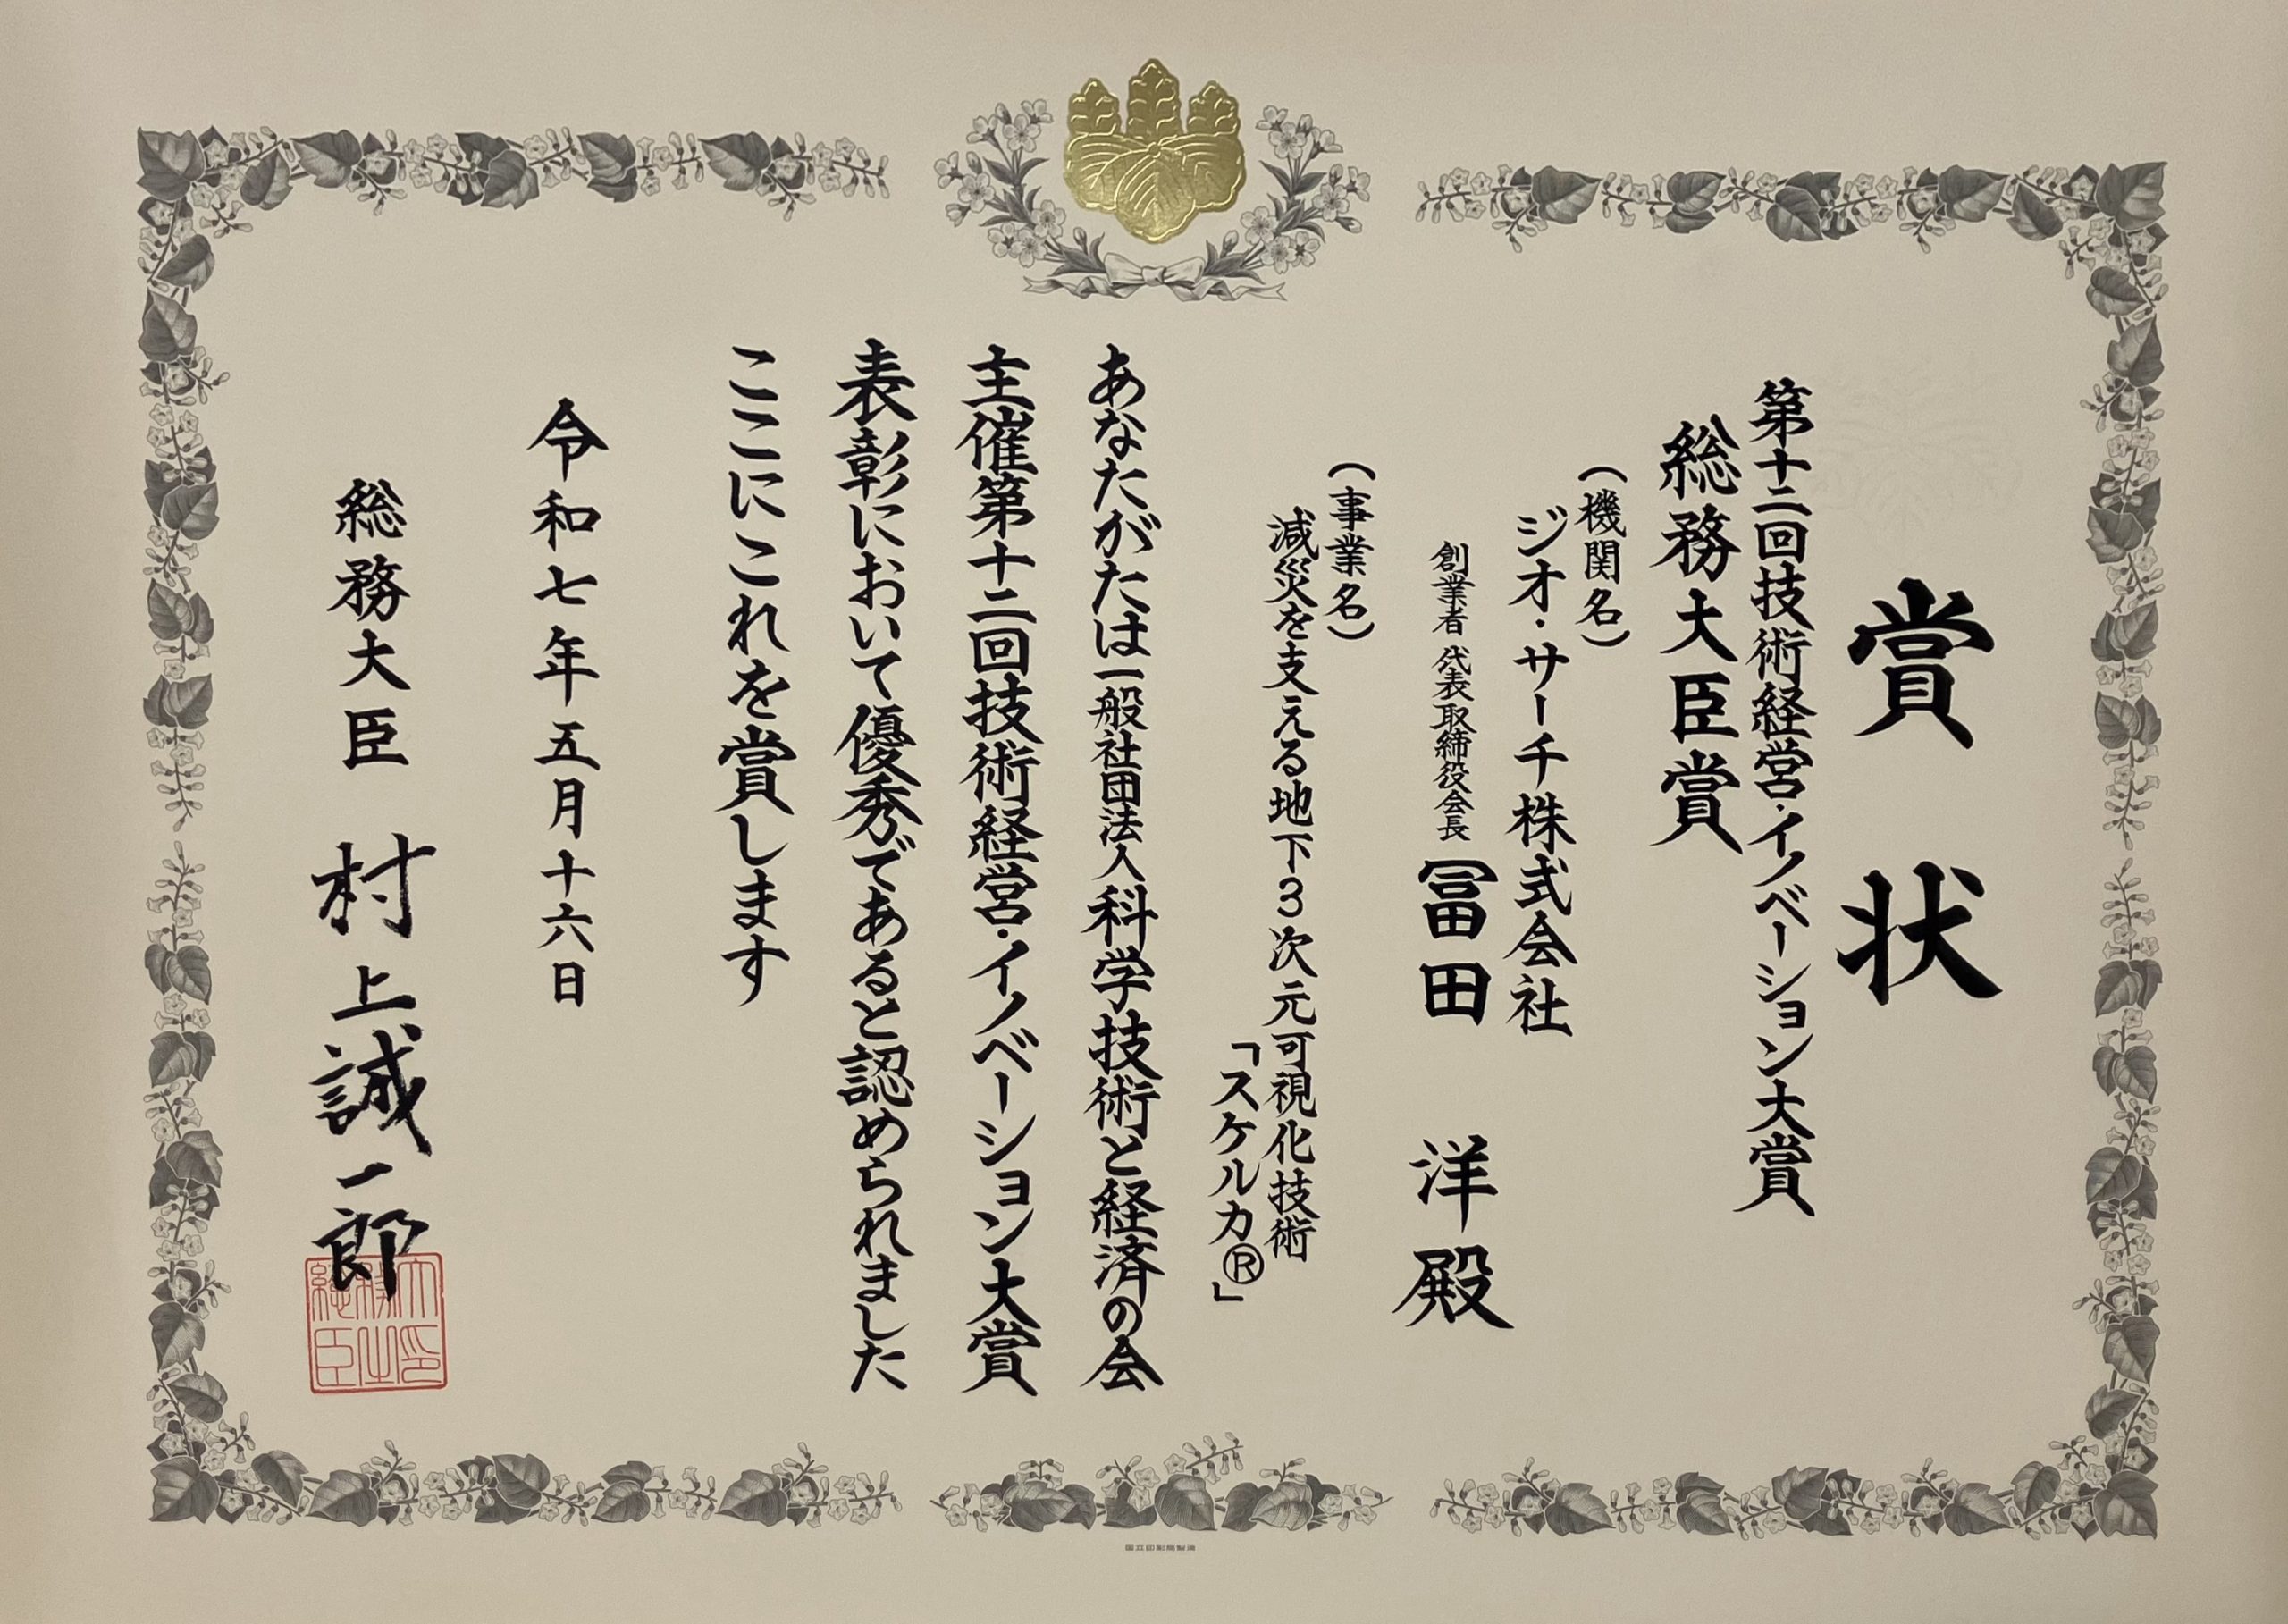 賞状
第十二回技術経営・イノベーション大賞
総務大臣賞
（機関名）
ジオ・サーチ株式会社
創業者 代表取締役会長 冨田 洋 殿
（事業名）
減災を支える地下3次元可視化技術
「スケルカ®」
あなたがたは一般社団法人科学技術と経済の会
主催第十二回技術経営・イノベーション大賞
表彰において優秀であると認められました
ここにこれを賞します
令和七年五月十六日
総務大臣 村上誠一郎
総務大臣之印
国立印刷局製造